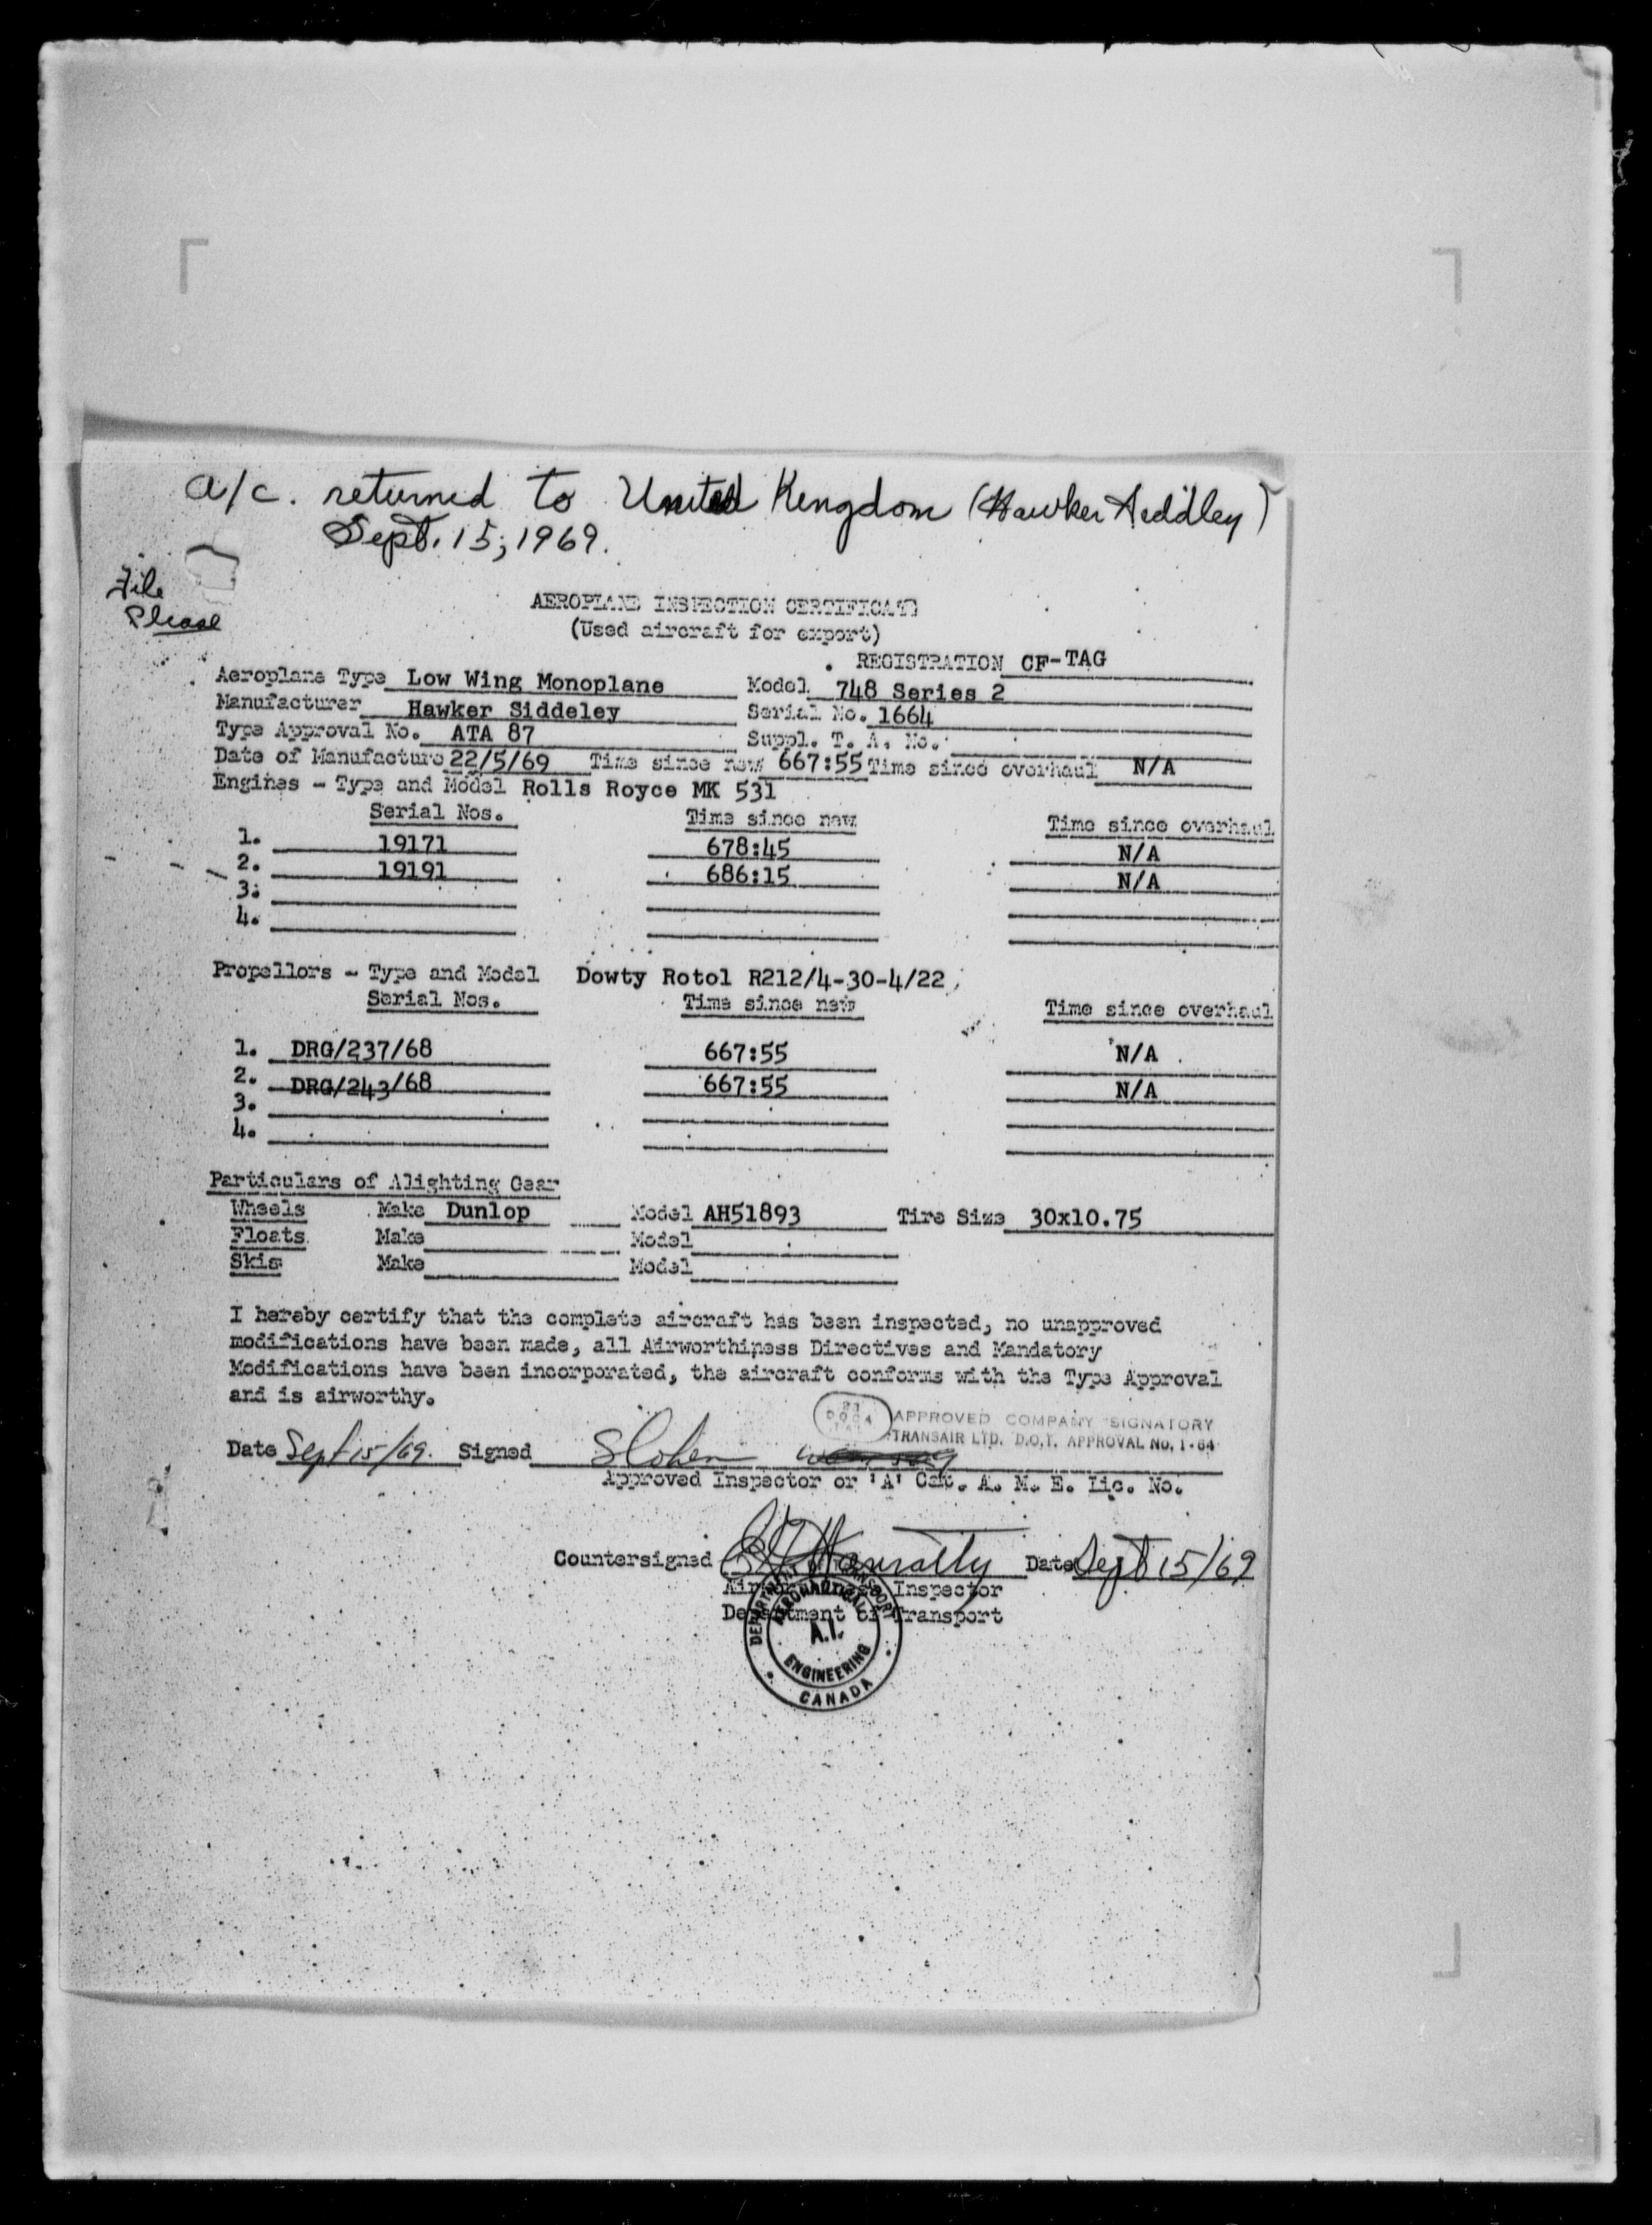 a/c. returned to United Kingdom (Hawker Siddley)
Sept. 15, 1969.
File
Please
AEROPLANE INSPECTION CERTIFICATE
(Used aircraft for export)
REGISTRATION CF-TAG
Aeroplane Type Low Wing Monoplane Model 748 Series 2
Manufacturer Hawker Siddeley Serial No. 1664
Type Approval No. ATA 87 Suppl. T. A. No.
Date of Manufacture 22/5/69 Time since new 667:55 Time since overhaul N/A
Engines - Type and Model Rolls Royce MK 531
Serial Nos. Time since new Time since overhaul
1. 19171 678:45 N/A
2. 19191 686:15 N/A
3.
4.
Propellors - Type and Model Dowty Rotol R212/4-30-4/22
Serial Nos. Time since new Time since overhaul
1. DRG/237/68 667:55 N/A
2. DRG/243/68 667:55 N/A
3.
4.
Particulars of Alighting Gear
Wheels Make Dunlop Model AH51893 Tire Size 30x10.75
Floats Make Model
Skis Make Model
I hereby certify that the complete aircraft has been inspected, no unapproved
modifications have been made, all Airworthiness Directives and Mandatory
Modifications have been incorporated, the aircraft conforms with the Type Approval
and is airworthy.
APPROVED COMPANY SIGNATORY
TRANSAIR LTD. D.O.T. APPROVAL NO. 1-64
Date Sept 15/69. Signed
Approved Inspector or 'A' Cat. A. M. E. Lic. No.
Countersigned Date Sept 15/69
Airworthiness Inspector
Department of Transport
DEPARTMENT OF TRANSPORT
AERONAUTICAL
A.I.
ENGINEERING
CANADA